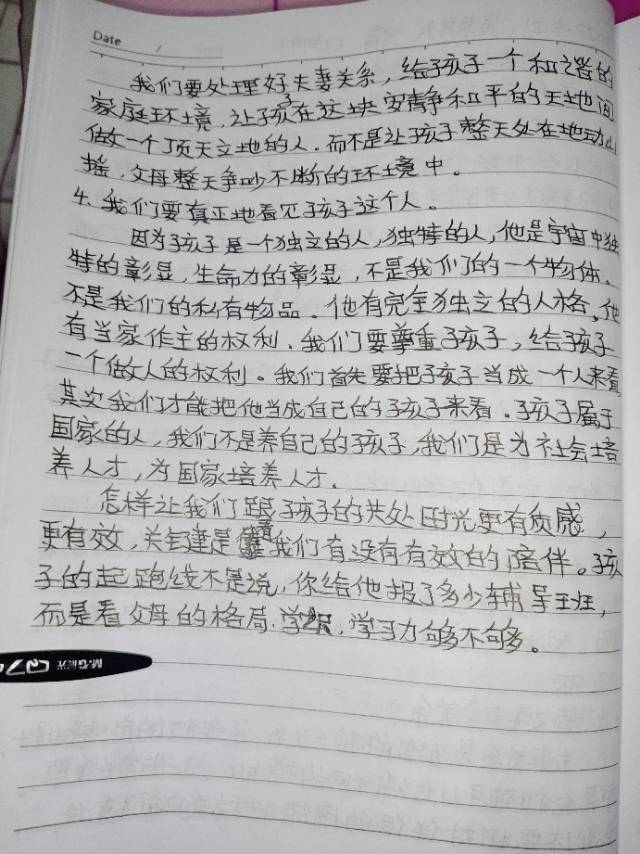 Date /
我们要处理好夫妻关系，给孩子一个和谐的
家庭环境，让孩子在这块安静和平的天地间
做一个顶天立地的人。而不是让孩子整天处在地动山
摇，父母整天争吵不断的环境中。
4. 我们要真正地看见孩子这个人。
因为孩子是一个独立的人，独特的人，他是宇宙中独
特的彰显，生命力的彰显，不是我们的一个物体，
不是我们的私有物品。他有完全独立的人格，他
有当家作主的权利。我们要尊重孩子，给孩子
一个做人的权利。我们首先要把孩子当成一个人来看，
其次我们才能把他当成自己的孩子来看。孩子属于
国家的人，我们不是养自己的孩子，我们是为社会培
养人才，为国家培养人才。
怎样让我们跟孩子的共处时光更有质感，
更有效，关键是看我们有没有有效的陪伴。孩
子的起跑线不是说，你给他报了多少辅导班，
而是看父母的格局，学识，学习力够多不够多。
M&G晨光 Q7